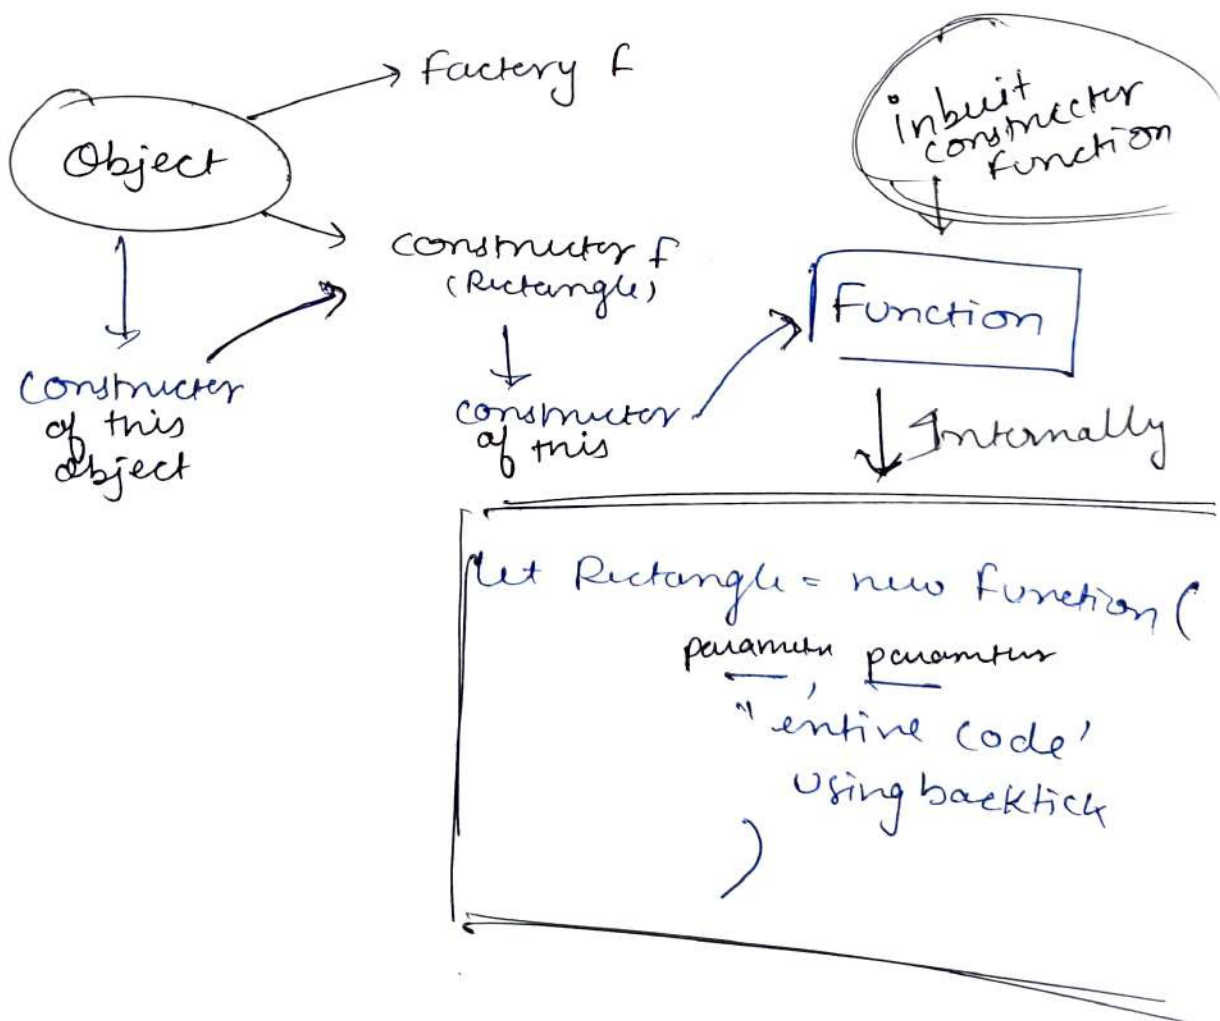 factery f
Object
inbuit
constructer
function
constructor f
(Rectangle)
Function
constructer
of this
object
constructor
of this
Internally
let Rectangle = new function (
parameter parameters
,
" entire code'
using backtick
)